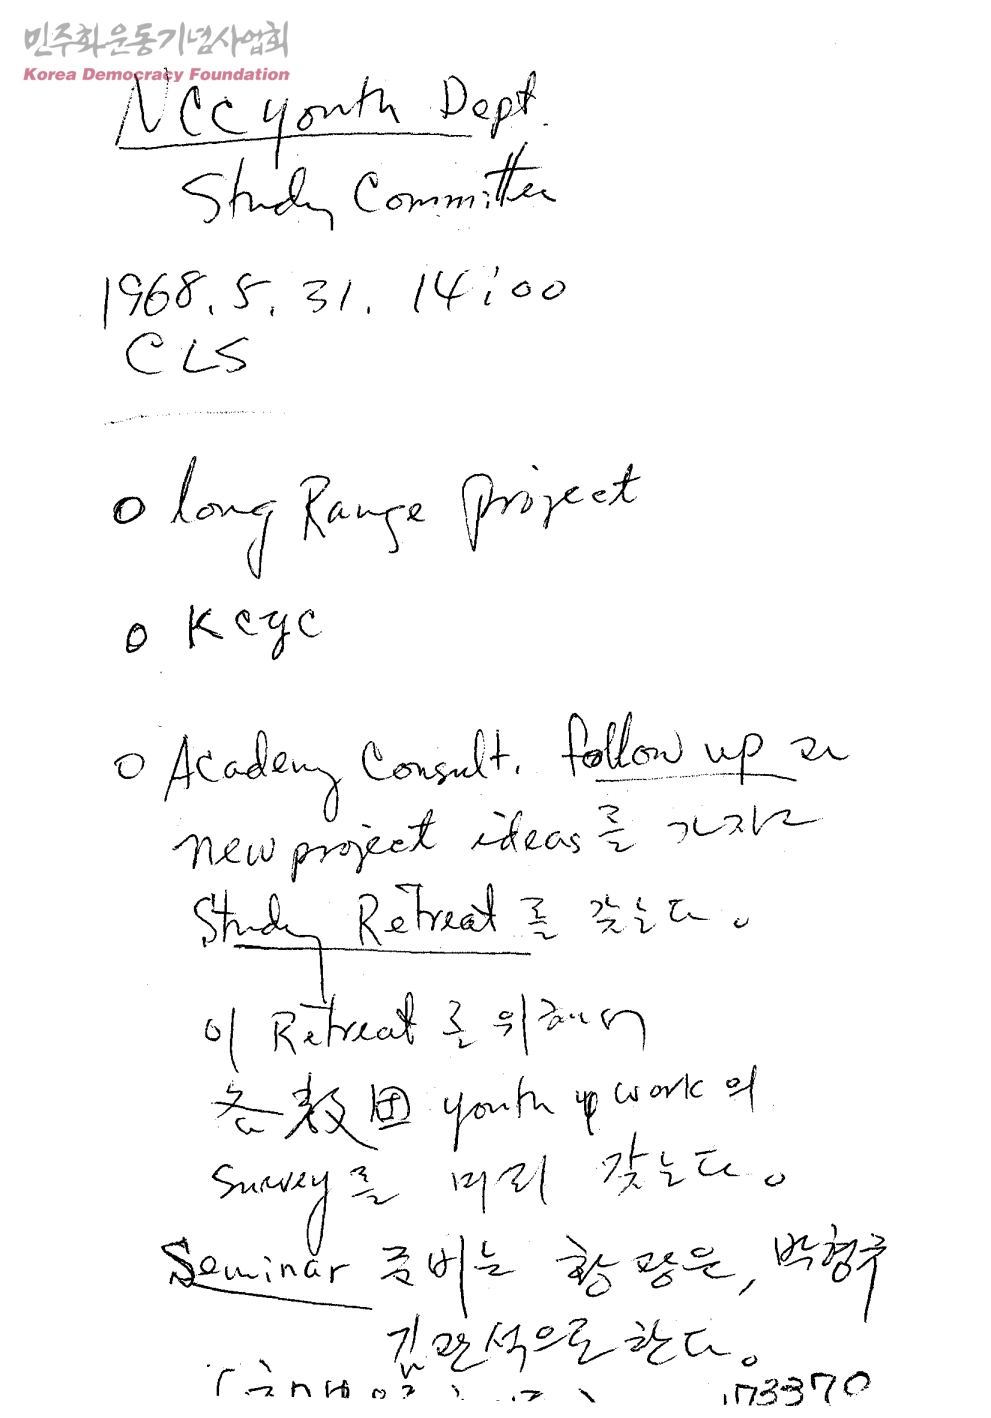 민주화운동기념사업회
Korea Democracy Foundation
NCC youth Dept.
Study Committee
1968. 5. 31. 14:00
CLS
o long Range project
o KCYC
o Academy Consult. follow up과
new project ideas를 가지고
Study Retreat를 갖는다.
이 Retreat를 위해서
各敎団 youth work의
survey를 미리 갖는다.
Seminar 준비는 황광은, 박형규
김관석으로 한다.
173370